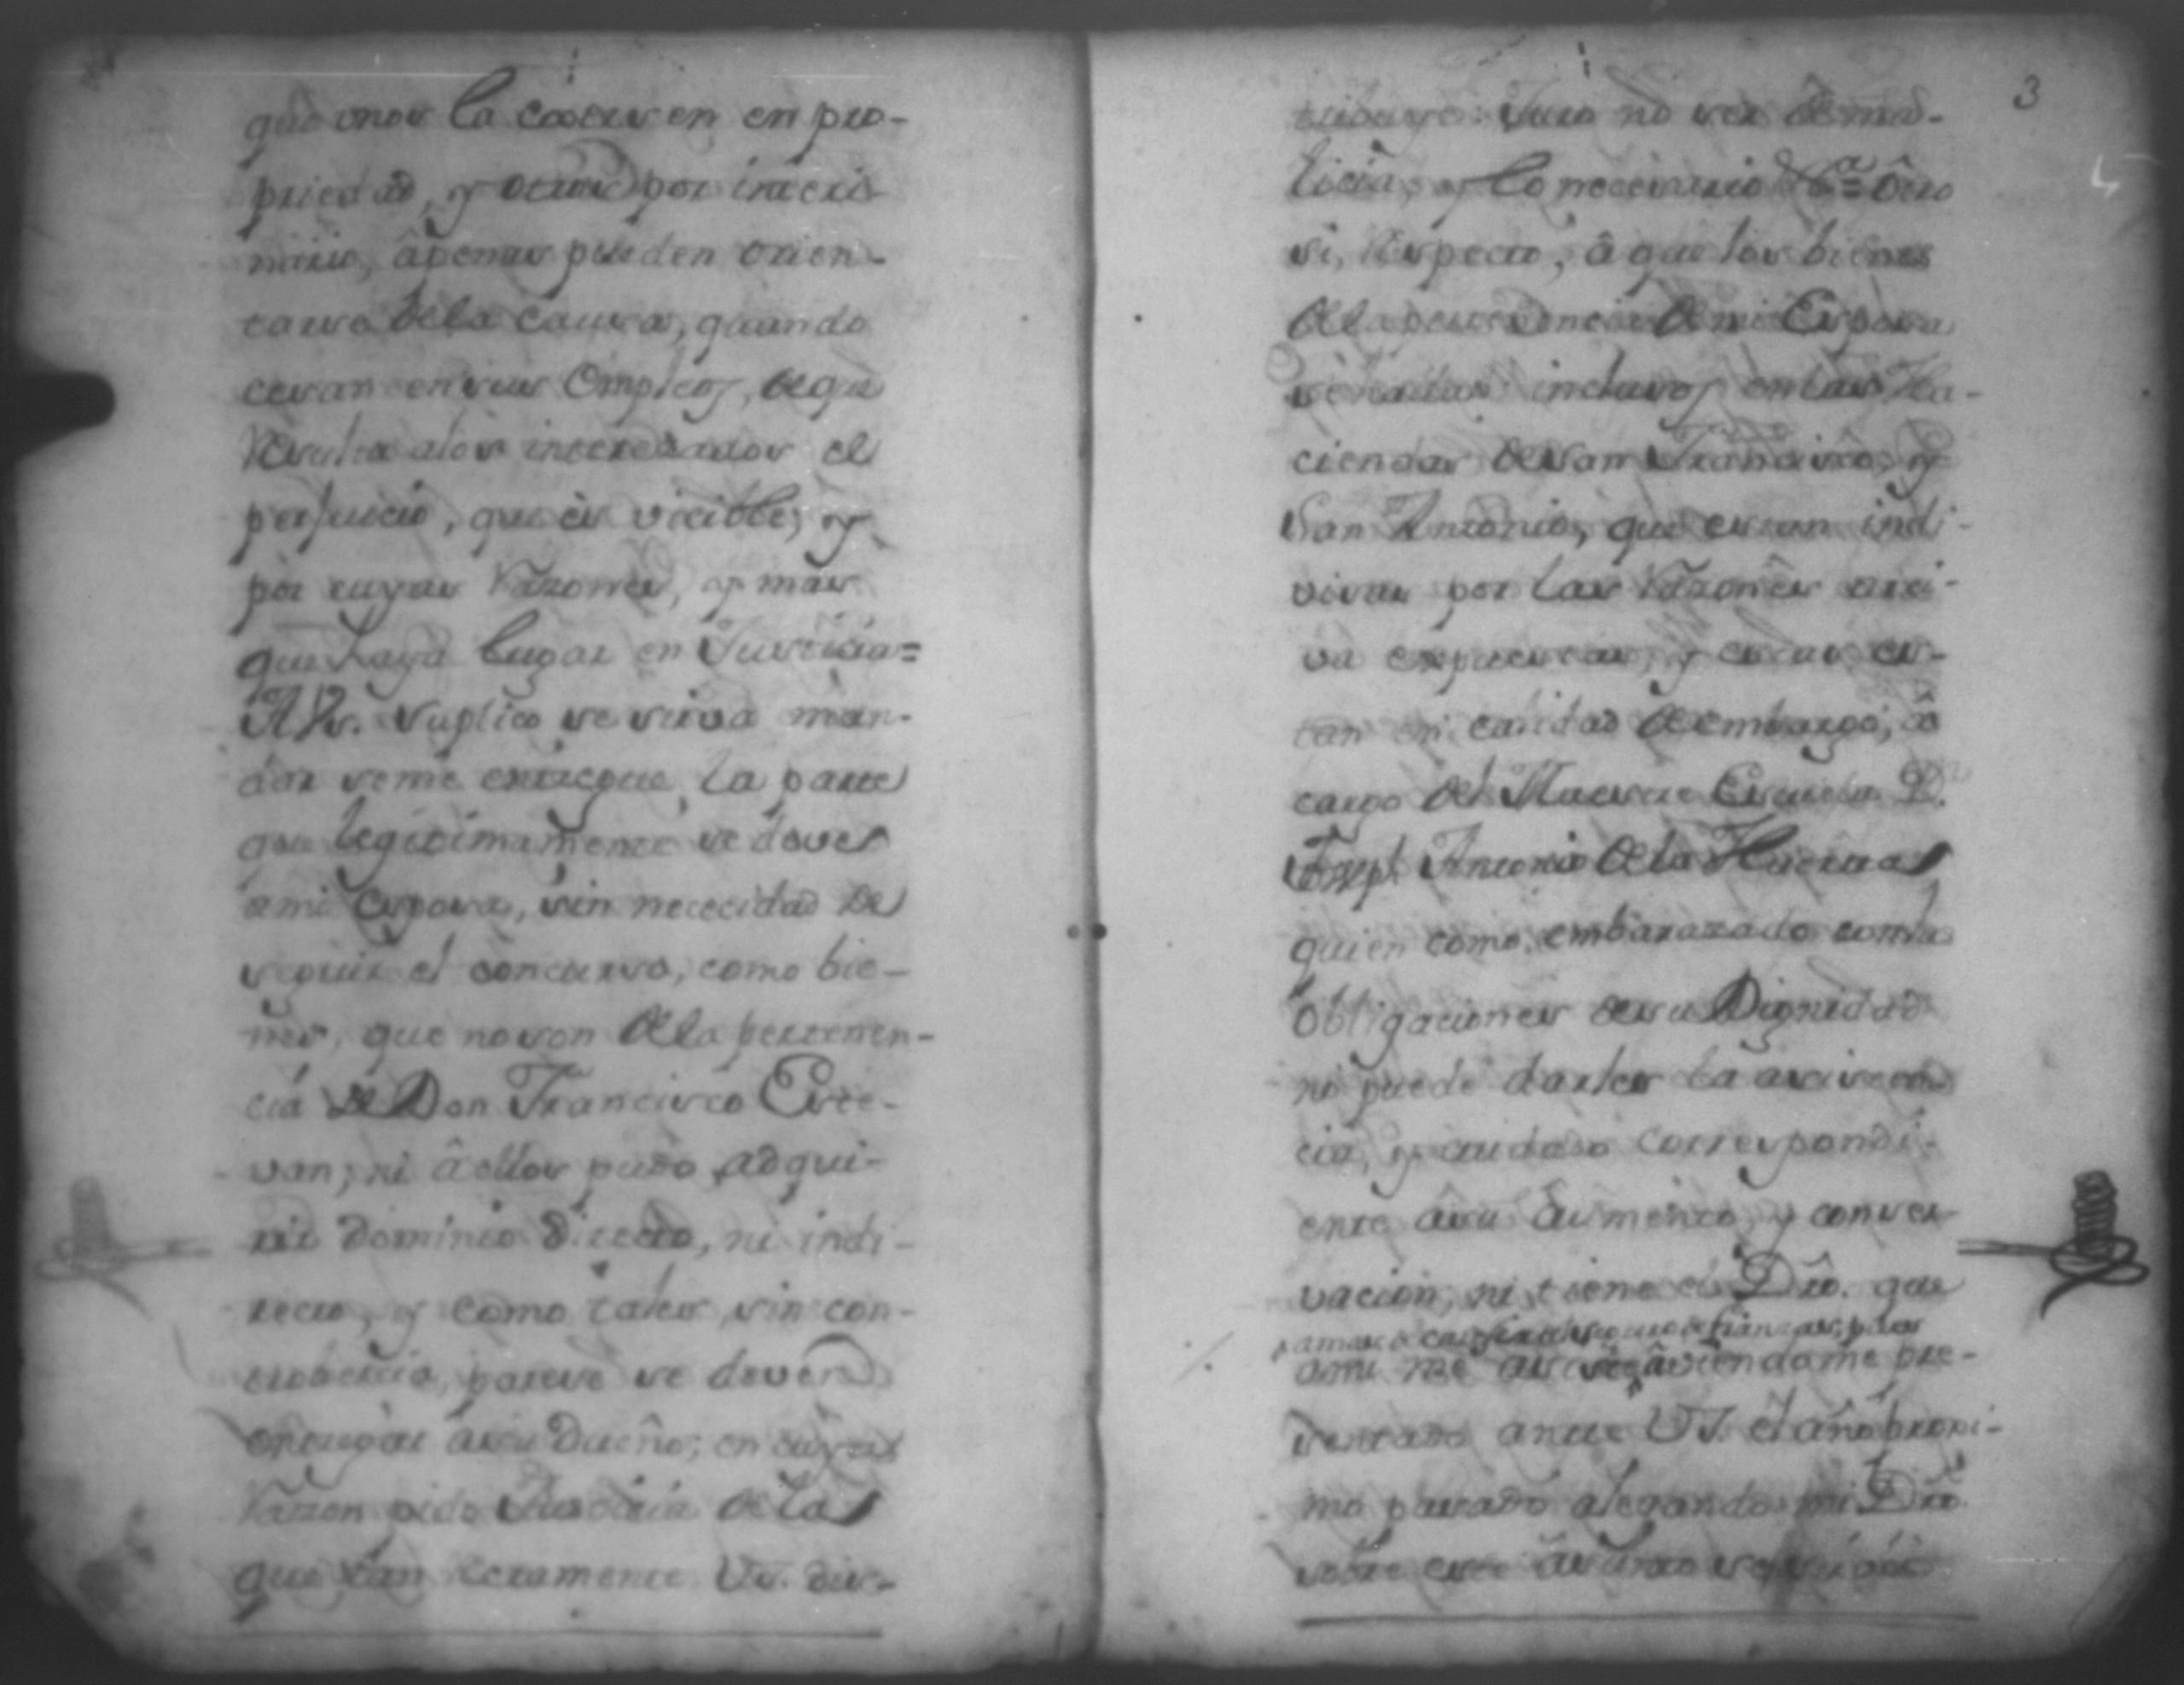 que unos la exersen en pro-
priedad, y otros por interis
mirio, âpenas pueden orien-
tarse dela causa, quando
cesan en sus Empleos, de que
Resulta alos interesados el
perjuicio, que ês vicible; y
por cuyas Razones, y mas
que haya lugar en Justicia=
A Vs. suplico se sirva man-
dar seme entregue la parte
que legitimamente se deve
ami Esposa, sin nececidad de
seguir el concurso, como bie-
nes, que no son dela pertenen-
cia de Don Francisco Este-
van; ni â ellos pudo adqui-
rir dominio directo, ni indi-
recto, y como tales, sin con-
trobercia, parese se deven
entregar asu Dueño; en cuya
Razon pido Justicia dela
que tan rectamente Vs. dis-
3
4
tribuye: Juro no ser de ma-
licia, y lo necesario &a= Ôtro
si, Respecto, â que los bienes
dela pertenencia de mi Esposa
inclusos en las Ha-
ciendas de San Francisco, y
San Antonio, que estan indi-
visas por las Razones arri-
va expuestas, y estas es-
tan en calidad de embargo, â
cargo del Maestre Escuela D.
Joseph Antonio dela Huerta
quien como embarazado con las
obligaciones de su Dignidad
no puede darles la asisten-
cia, y cuidado correspondi-
ente âsu aumento, y conser-
vacion, ni tiene el Dro. que
ami me asiste âviendome pre-
sentado ante VS. el año proxi-
mo pasado alegando mi Dro
sobre este âsunto